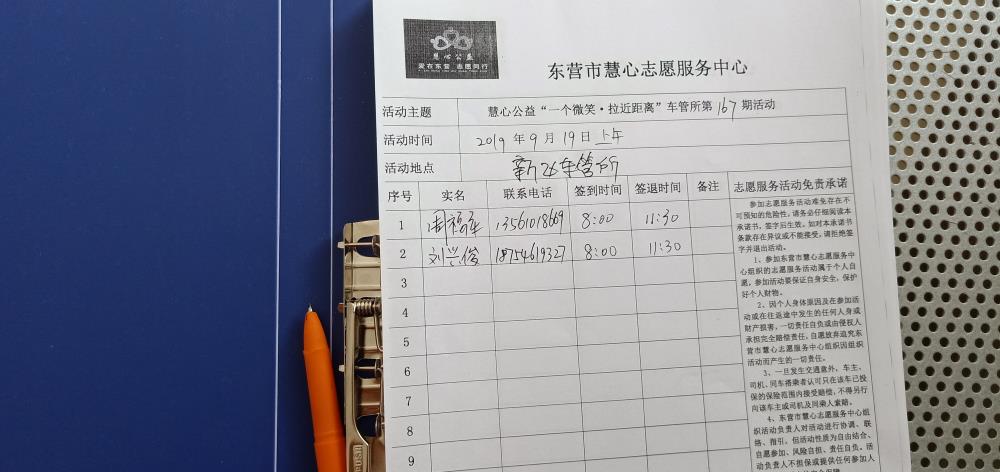 慧心公益
爱在东营 志愿同行
东营市慧心志愿服务中心
活动主题 慧心公益“一个微笑·拉近距离”车管所第167期活动
活动时间 2019年9月19日上午
活动地点 新区车管所
序号 实名 联系电话 签到时间 签退时间 备注 志愿服务活动免责承诺
1 13561018669 8:00 11:30
2 刘兴俊 18754619327 8:00 11:30
3
4
5
6
7
8
9
参加志愿服务活动难免存在不
可预知的危险性,请务必仔细阅读本
承诺书,签字后生效。如对本承诺书
条款存在异议或不能接受,请拒绝签
字并退出活动。
1、参加东营市慧心志愿服务中
心组织的志愿服务活动属于个人自
愿,参加活动要保证自身安全,保护
好个人财物。
2、因个人身体原因及在参加活
动或在往返途中发生的任何人身或
财产损害,一切责任自负或由侵权人
承担完全赔偿责任,自愿放弃追究东
营市慧心志愿服务中心组织因组织
活动而产生的一切责任。
3、一旦发生交通意外,车主、
司机、同车搭乘者认可只在该车已投
保的保险范围内接受赔偿,不得另行
向该车主或司机及同乘人索赔。
4、东营市慧心志愿服务中心组
织活动负责人对活动进行协调、联
络、指引。但活动性质为自由结合、
自愿参加、风险自担、责任自负。活
动负责人不担保或提供任何参加人